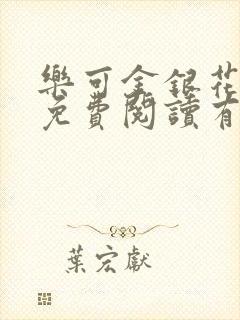 樂可金銀花
免費閱讀有
葉宏獻